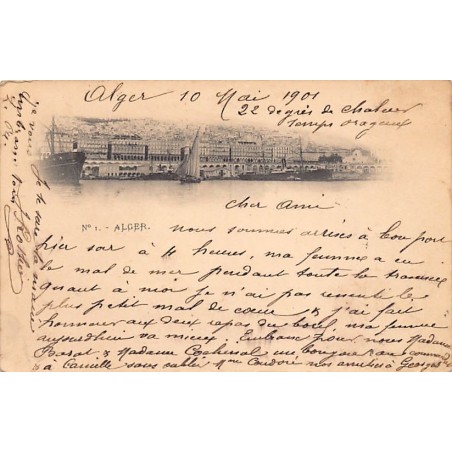 Alger 10 Mai 1901
22 degrés de chaleur
Temps orageux
N° 1. - ALGER.
Cher Ami
nous sommes arrivés à bon port
hier soir à 4 heures, ma femme a eu
le mal de mer pendant toute la traversée
quant à moi je n'ai pas ressenti le
plus petit mal de cœur & j'ai fait
honneur aux deux repas du bord, ma femme
aujourd'hui va mieux. Embrassez pour nous Madame
& Madame un bonjour
a Camille sans oublier Mme nos amitiés à Georges
Je te serre la main